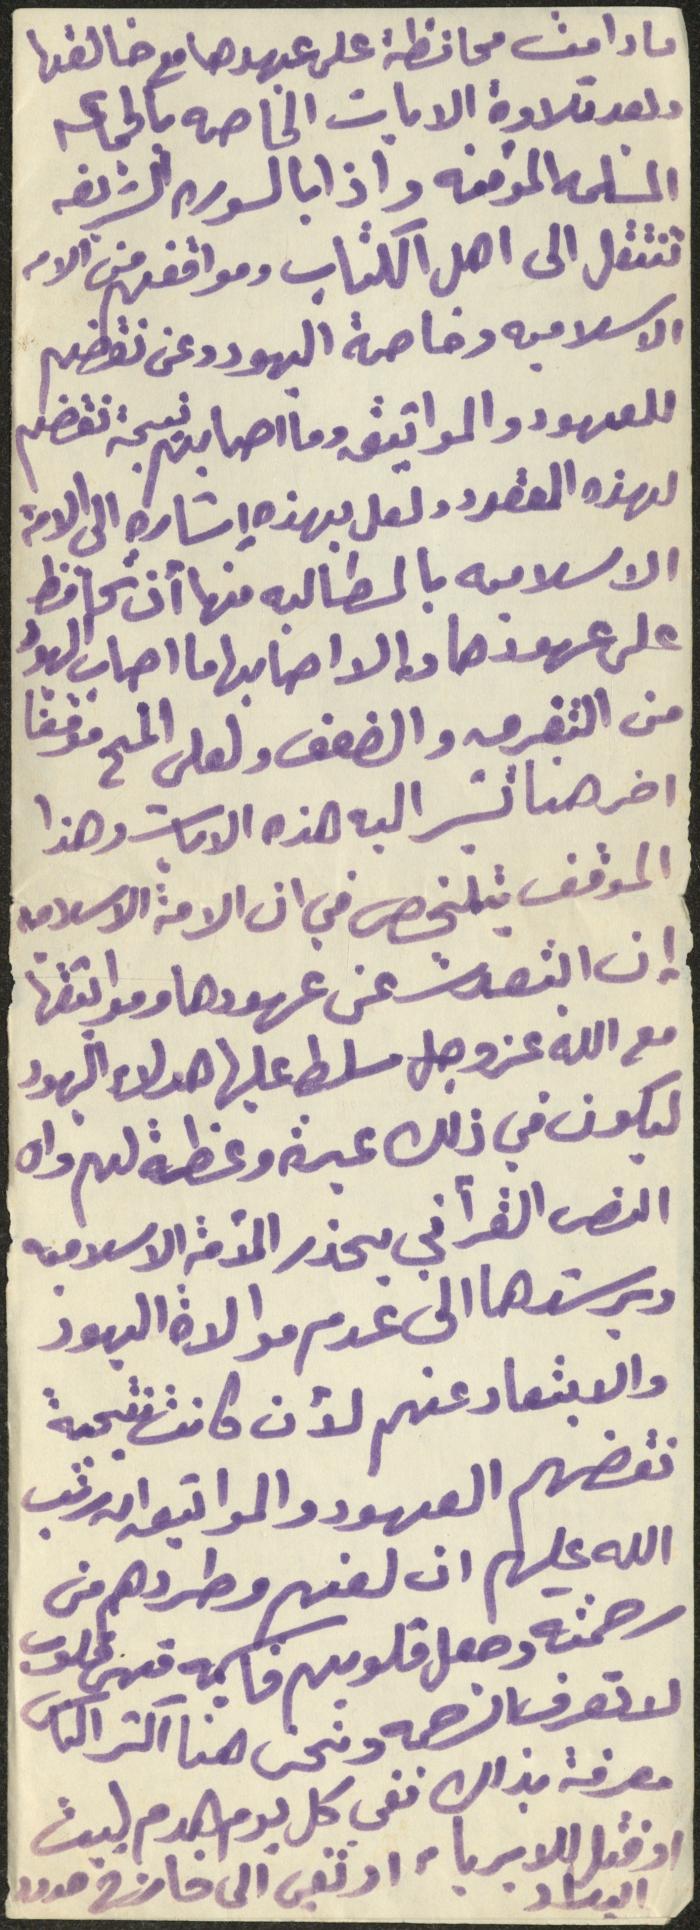 مادامت محافظة على عهدها مع خالقها
وبعد تلاوة الايات الخاصه بالجماعه
المسلمه المؤمنه واذا بالسوره الشريفه
تنتقل الى اهل الكتاب ومواقفهم من الامه
الاسلاميه وخاصة اليهود وعن نقضهم
للعهود والمواثيق وما اصابهم نتيجة نقضهم
لهذه العقود ولعل بهذه إشاره الى الامة
الاسلاميه بالمطالبه منها أن تحافظ
على عهودها والا اصابها ما اصاب اليهود
من التفرقه والضعف ولعلى المح موقفا
اخر هنا تشير اليه هذه الايات وهذا
الموقف يتلخص في ان الامة الاسلاميه
إن ابتعدت عن عهودها ومواثيقها
مع الله عزوجل سلط عليها هؤلاء اليهود
ليكون في ذلك عبرة وعظة لهم وان
النص القرأني يحذر الأمة الاسلاميه
ويرشدها الى عدم موالاة اليهود
والابتعاد عنهم لأن كانت نتيجة
نقضهم العهود والمواثيق ان رتب
الله عليهم ان لعنهم وطردهم من
رحمته وجعل قلوبهم قاسيه فهى قلوب
لا تعرف الرحمه ونحن هنا اكثر الناس
معرفة بذلك ففى كل يوم هدم لبيت
او قتل للابرياء او نفى الى خارج حدود
البلاد